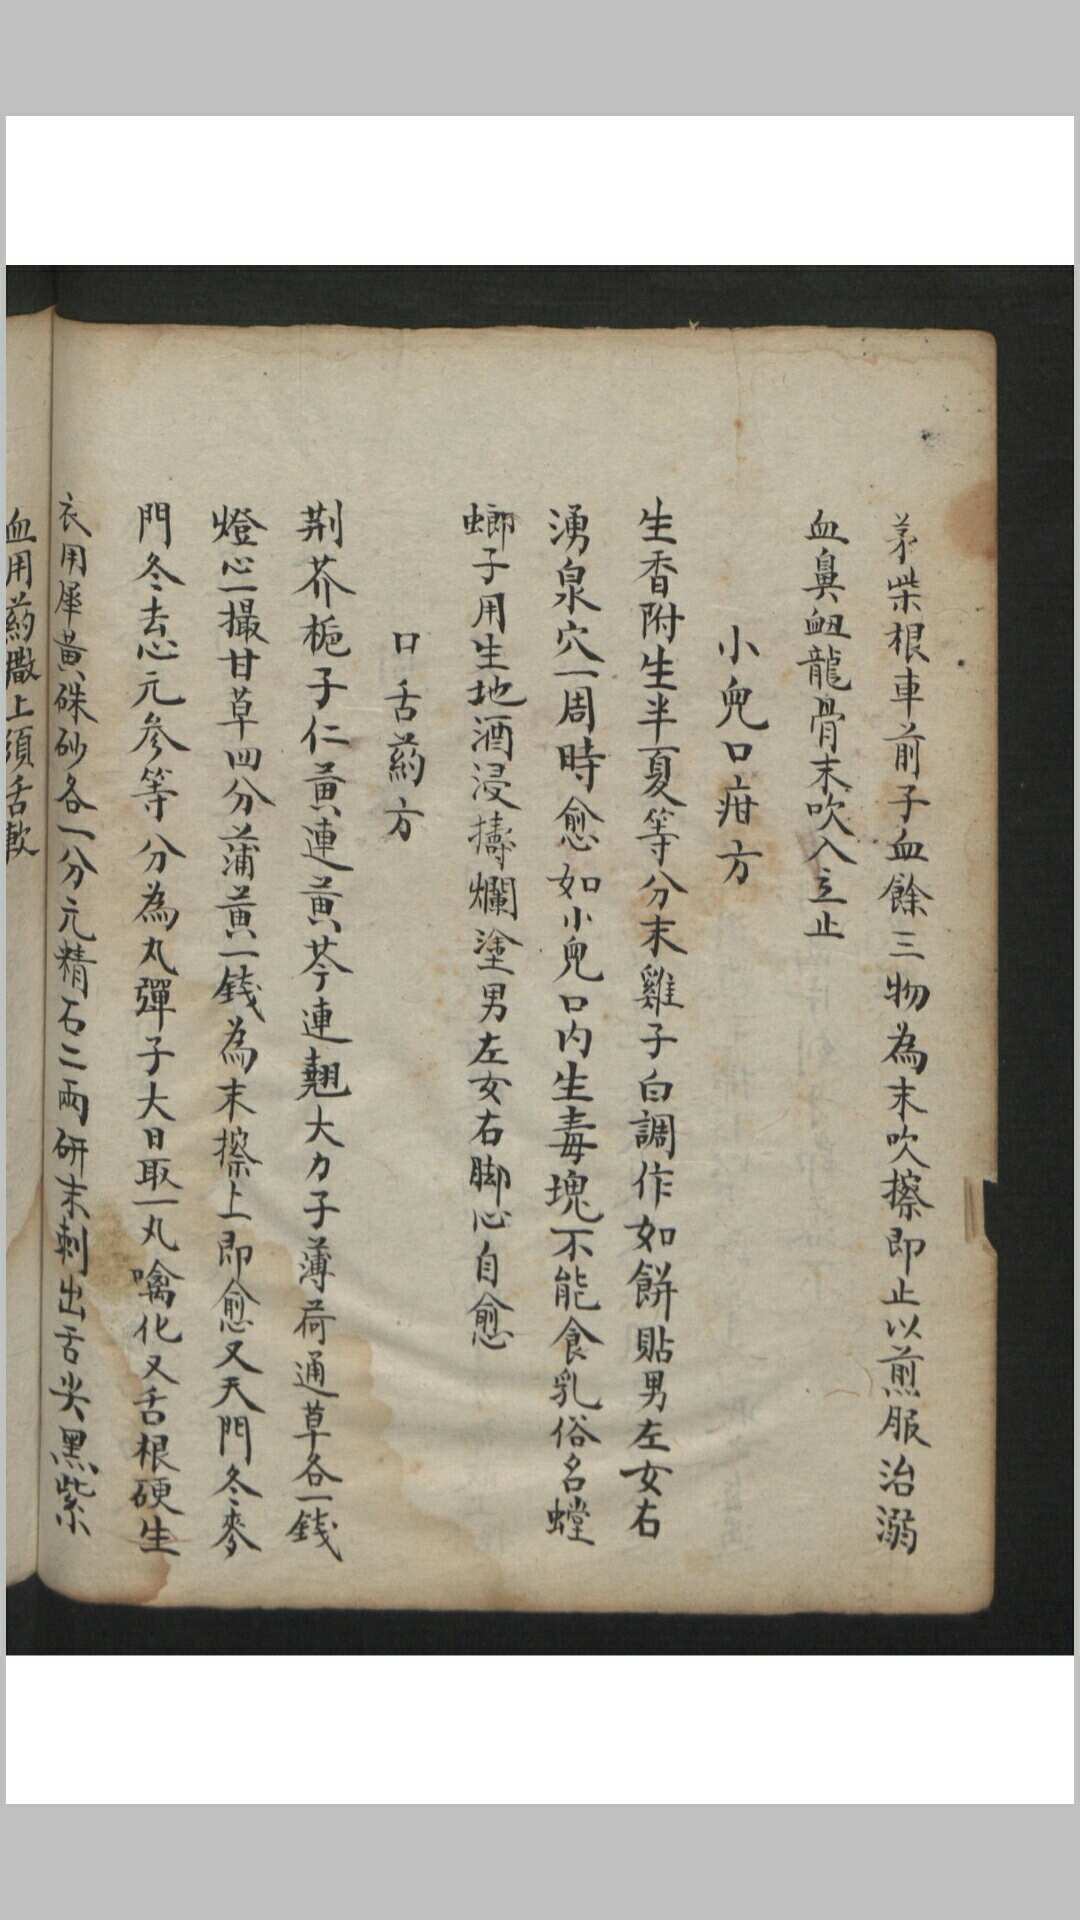 柴根車前子血餘三物為末吹擦即止以煎服治溺
血鼻衄龍骨末吹入立止
小兒口疳方
生香附生半夏等分末雞子白調作如餅貼男左女右
湧泉穴一周時愈如小兒口內生毒塊不能食乳俗名螳
螂子用生地酒浸擣爛塗男左女右脚心自愈
口舌葯方
荆芥梔子仁黃連黃芩連翹大力子薄荷通草各一錢
燈心一撮甘草四分蒲黃一錢為末擦上即愈又天門冬麥
門冬去心元參等分為丸彈子大日取一丸噙化又舌根硬生
衣用犀黃硃砂各一分元精石二兩研末刺出舌尖黑紫
血用葯撒上須舌軟